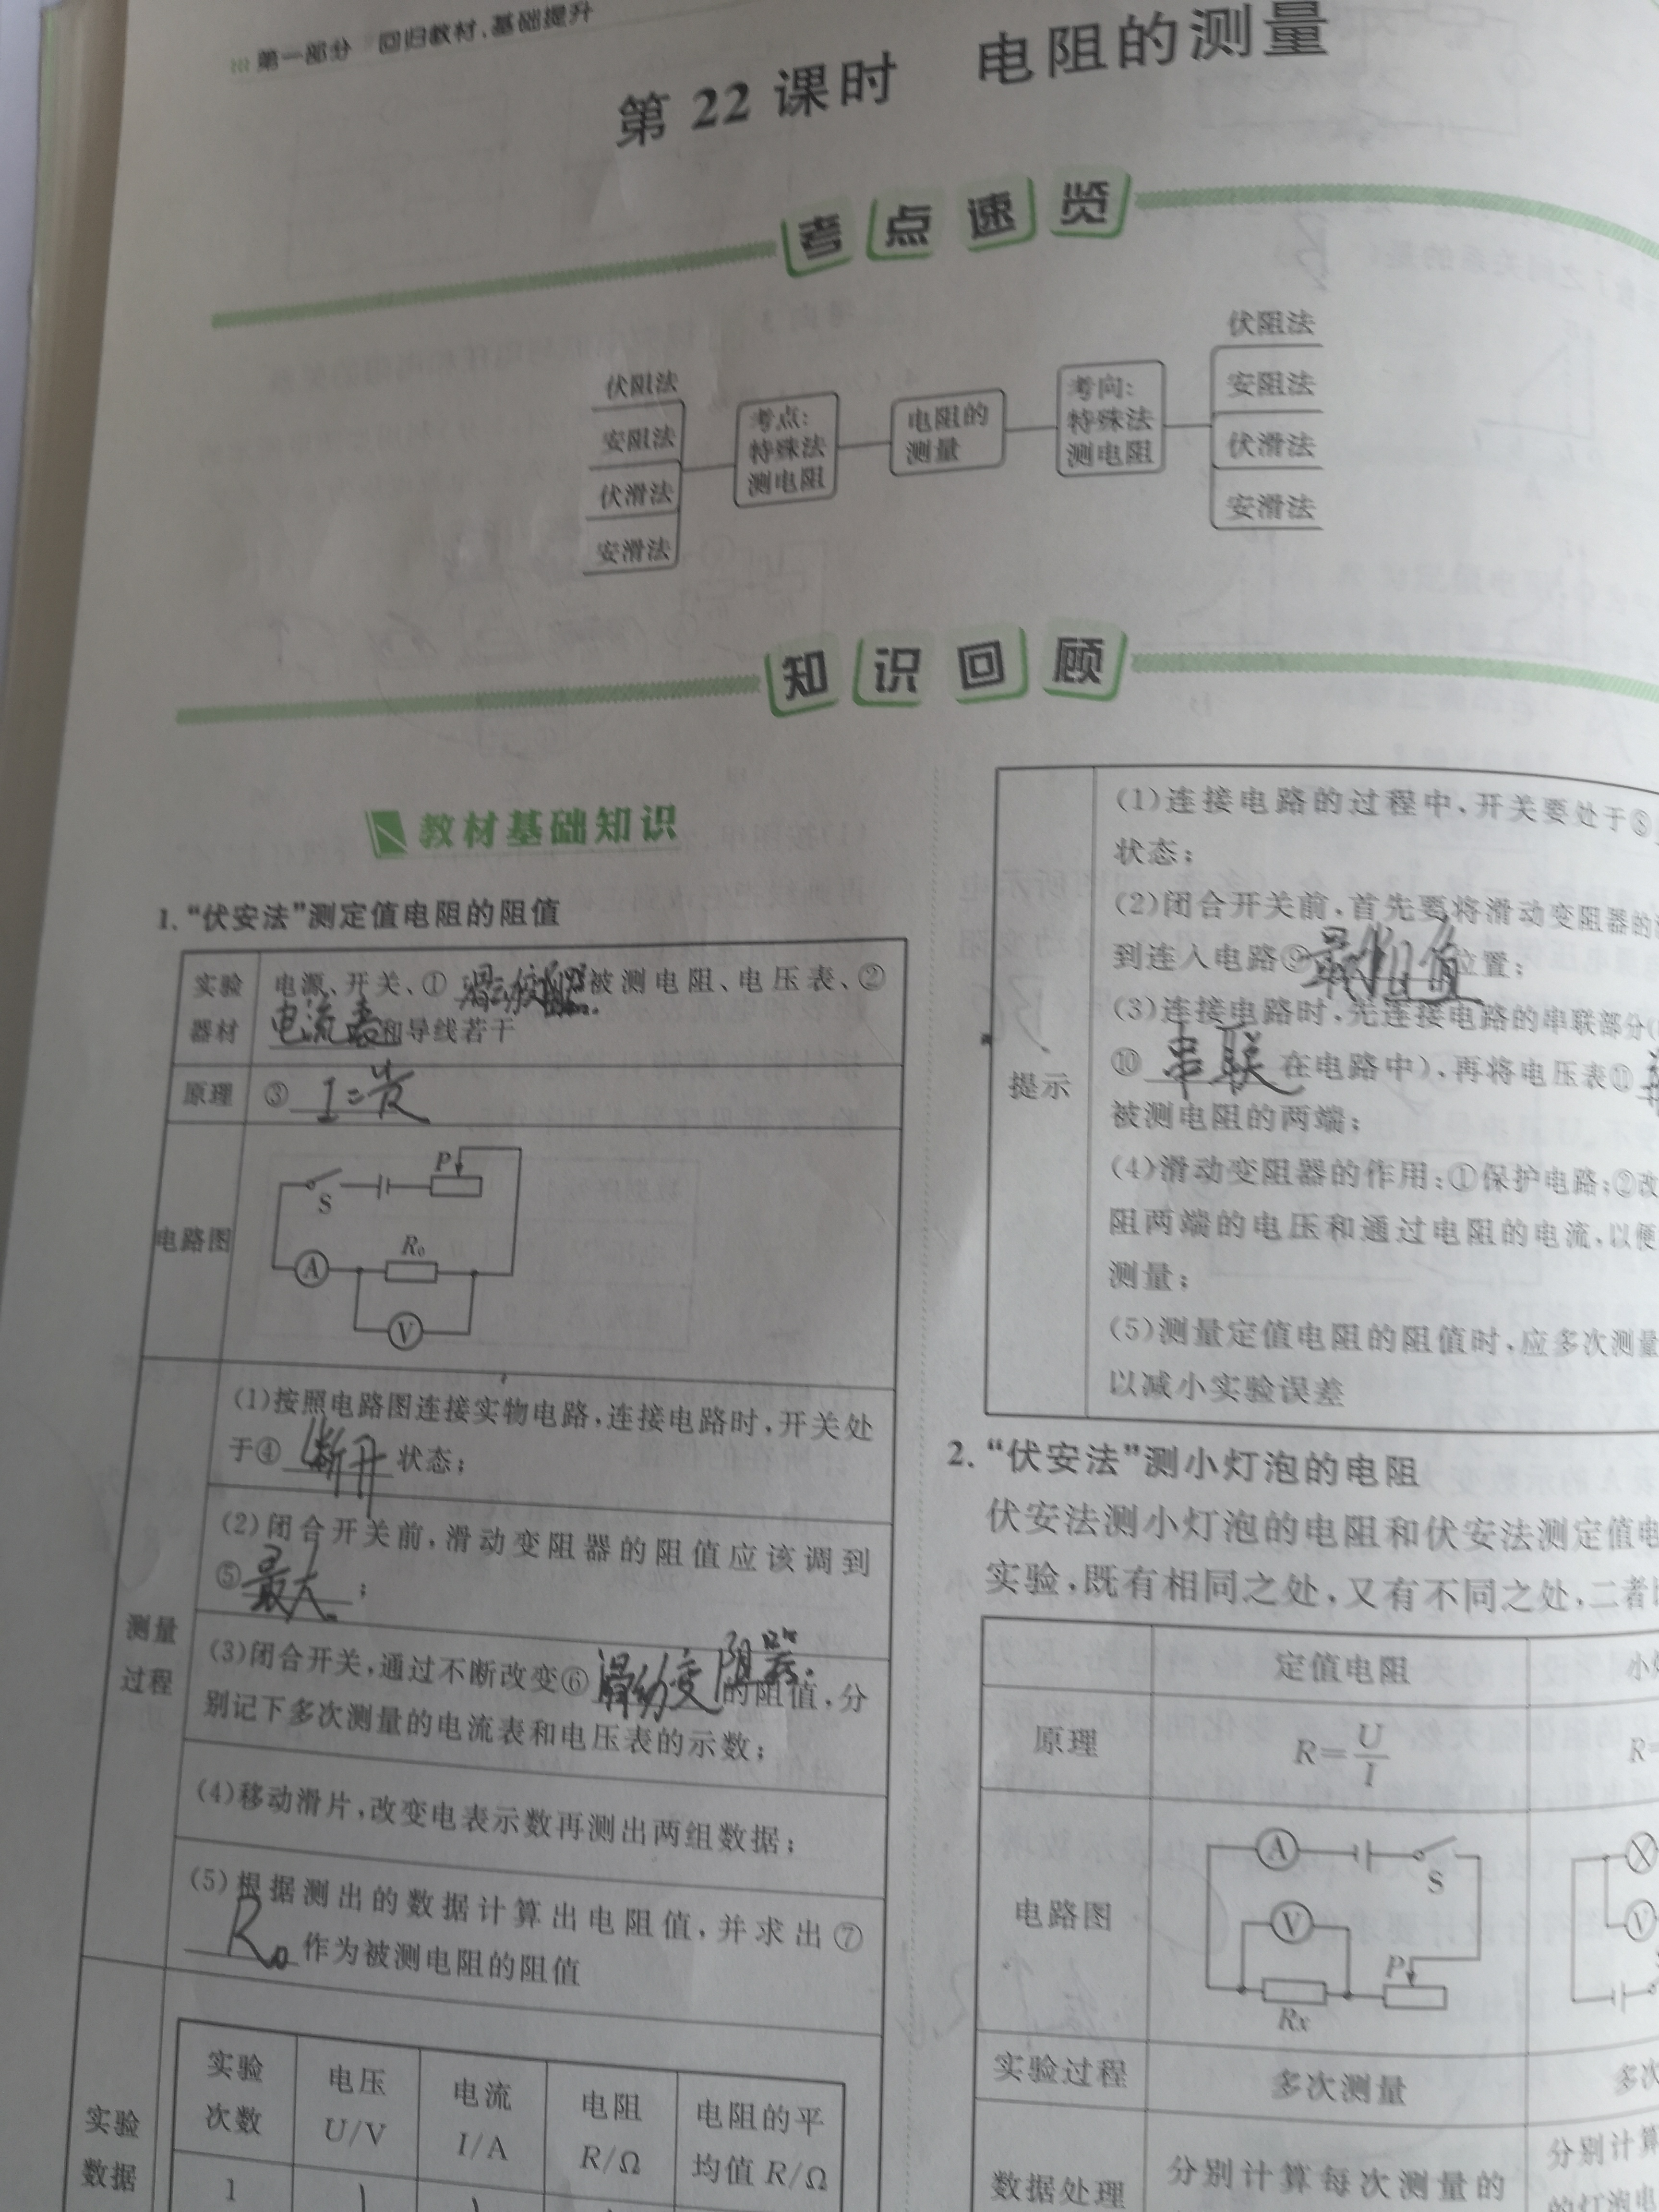 第一部分 回归教材,基础提升
第22课时 电阻的测量
考点速览
伏阻法
安阻法
伏滑法
安滑法
考点:
特殊法
测电阻
电阻的
测量
考向:
特殊法
测电阻
伏阻法
安阻法
伏滑法
安滑法
知识回顾
教材基础知识
1.“伏安法”测定值电阻的阻值
实验
器材
电源、开关、① 滑动变阻器 被测电阻、电压表、②
电流表 和导线若干
原理
③ I=U/R
电路图
P
S
R₀
A
V
测量
过程
(1)按照电路图连接实物电路,连接电路时,开关处
于④ 断开 状态;
(2)闭合开关前,滑动变阻器的阻值应该调到
⑤ 最大 ;
(3)闭合开关,通过不断改变⑥ 滑动变阻器 的阻值,分
别记下多次测量的电流表和电压表的示数;
(4)移动滑片,改变电表示数再测出两组数据;
(5)根据测出的数据计算出电阻值,并求出⑦
R₀ 作为被测电阻的阻值
实验
数据
实验
次数
电压
U/V
电流
I/A
电阻
R/Ω
电阻的平
均值 R/Ω
1
提示
(1)连接电路的过程中,开关要处于⑧
状态;
(2)闭合开关前,首先要将滑动变阻器的
到连入电路⑨ 位置;
(3)连接电路时,先连接电路的串联部分(
⑩ 串联 在电路中),再将电压表⑪
被测电阻的两端;
(4)滑动变阻器的作用:①保护电路;②改
阻两端的电压和通过电阻的电流,以便
测量;
(5)测量定值电阻的阻值时,应多次测量
以减小实验误差
2.“伏安法”测小灯泡的电阻
伏安法测小灯泡的电阻和伏安法测定值电
实验,既有相同之处,又有不同之处,二者
定值电阻
小
原理
R=U/I
R=
电路图
A
S
V
P
Rx
V
实验过程
多次测量
多次
数据处理
分别计算每次测量的
分别计算
的灯泡电